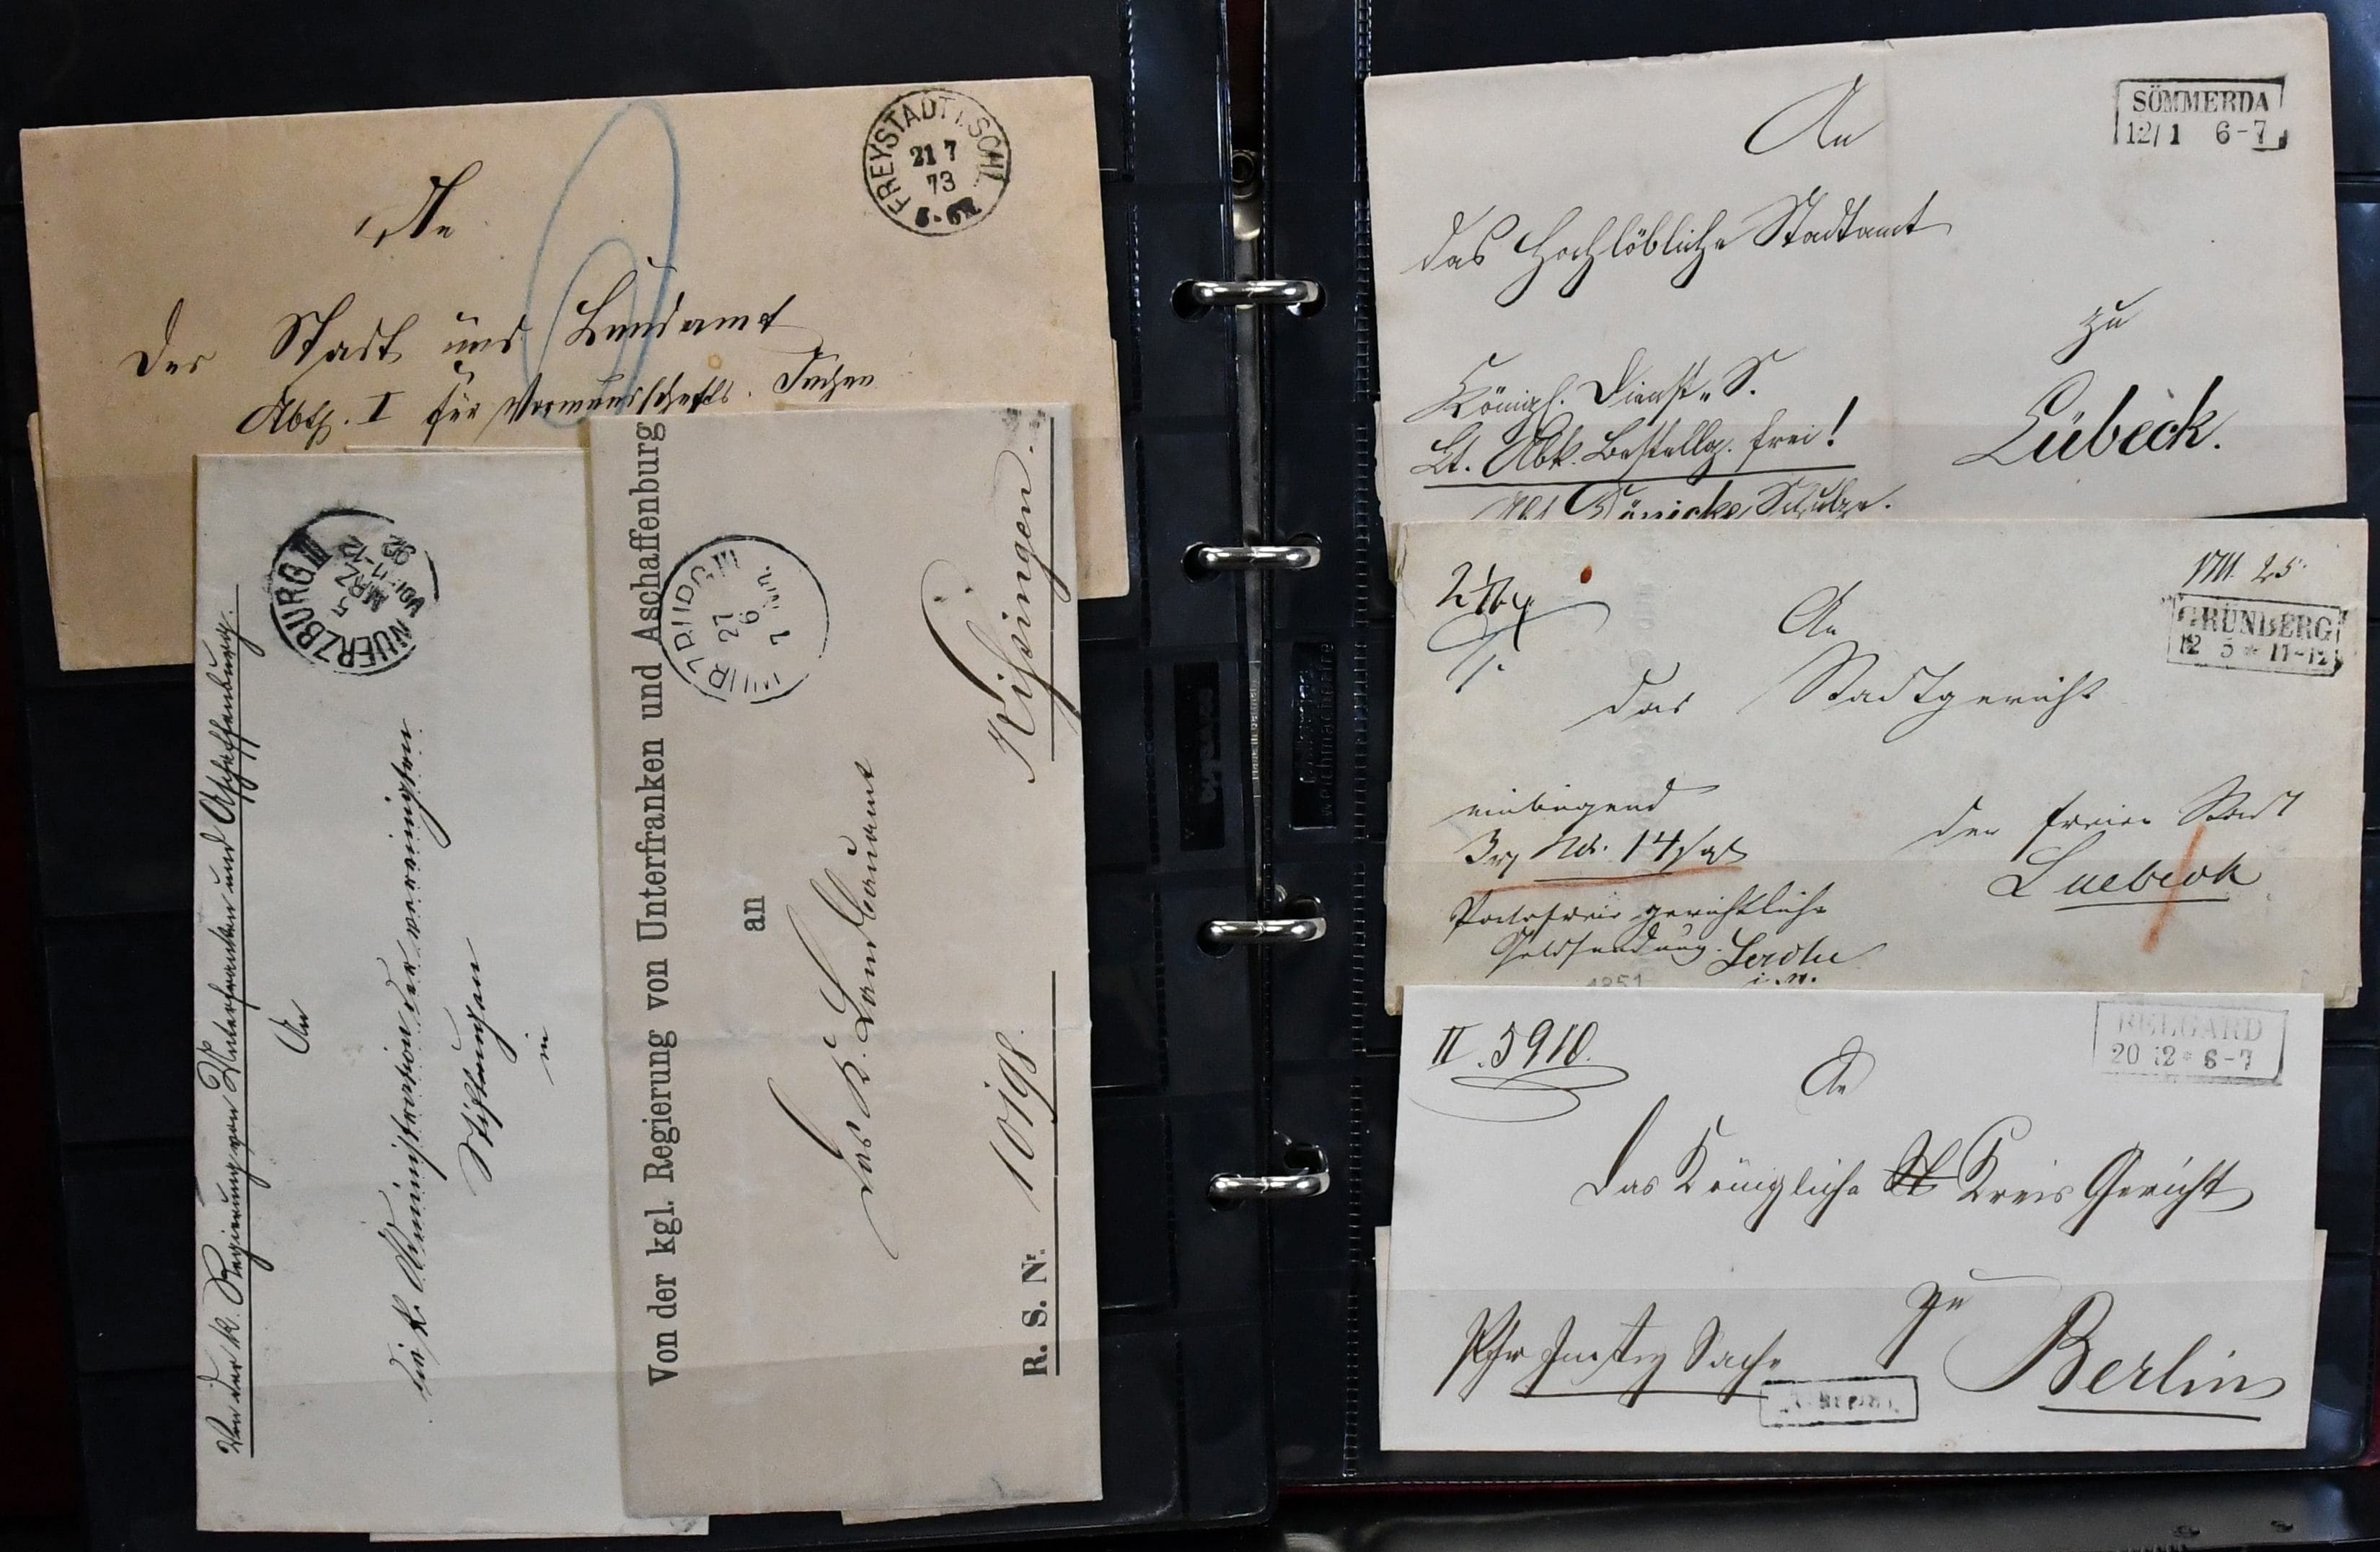 FREYSTADT I. SCHL.
21 7
73
An
Der Stadt und Landamt
Abth. I für Vormundschafts. Sachen
WUERZBURG III
5
MRZ
VOR. 11-12
92
Von der K. Regierung von Unterfranken und Aschaffenburg.
An
die K. Administration der vereinigten
Stiftungen
in
Von der kgl. Regierung von Unterfranken und Aschaffenburg
27
6
an
das K. Landbauamt
Kissingen.
R. S. Nr.
SÖMMERDA
12/1 6-7
An
das Hochlöbliche Stadtamt
zu
Lübeck.
Königl. Dienst S.
Lt. Abk. Bestellg. frei!
GRÜNBERG
12 5 * 11-12
An
das Stadtgericht
der freien Stadt
Luebeck
einliegend
Portofreie gerichtliche
Geldsendung.
1851
II. 5910.
BELGARD
20 12 * 6-7
An
das Königliche Kreis Gericht
zu
Berlin
Justiz Sache